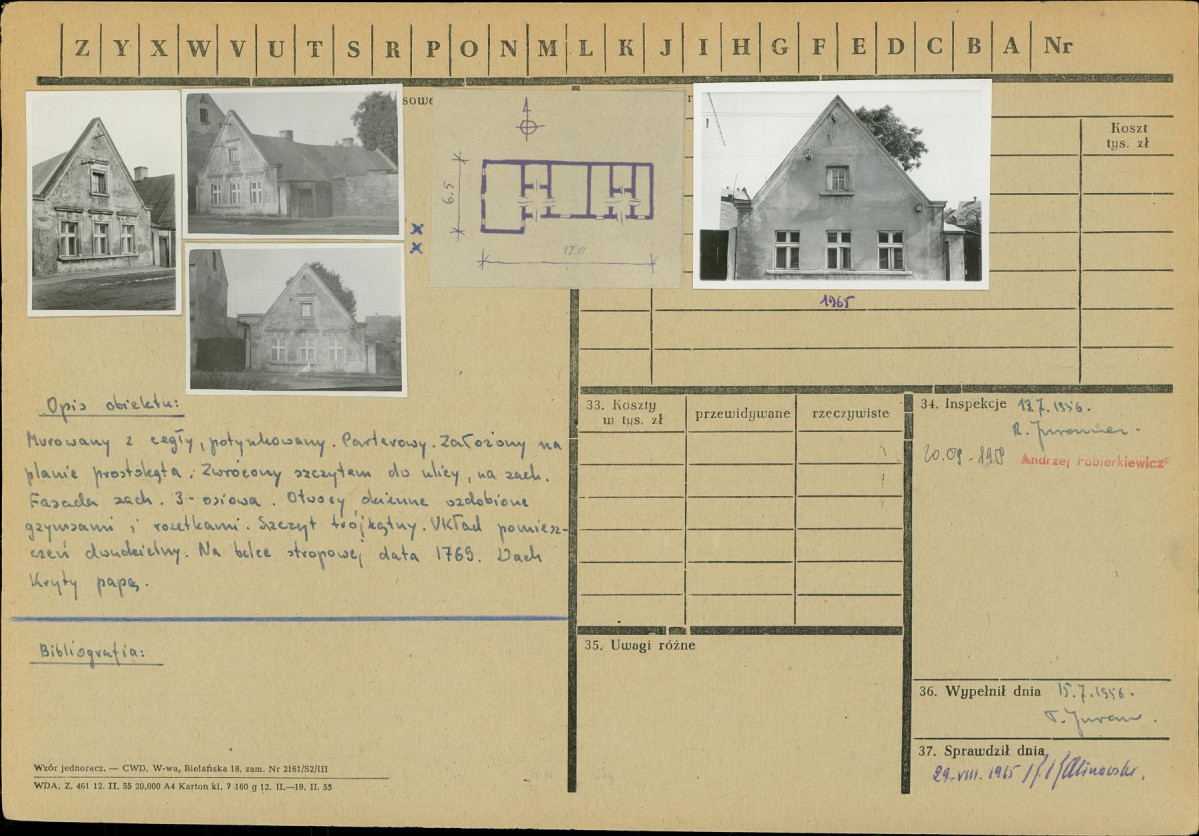 Z Y X W V U T S R P O N M L K J I H G F E D C B A Nr
sowe
Koszt
tys. zł
6.5
17.0
1965
Opis obiektu:
Murowany z cegły, potynkowany. Parterowy. Założony na
planie prostokąta. Zwrócony szczytem do ulicy, na zach.
Fasada zach. 3-osiowa. Otwory okienne ozdobione
gzymsami i rozetkami. Szczyt trójkątny. Układ pomiesz-
czeń dwudzielny. Na belce stropowej data 1769. Dach
kryty papą.
Bibliografia:
Wzór jednoracz. — CWD, W-wa, Bielańska 18, zam. Nr 2161/S2/III
WDA. Z. 461 12. II. 55 20.000 A4 Karton kl. 7 160 g 12. II.—19. II. 55
33. Koszty
w tys. zł
przewidywane
rzeczywiste
34. Inspekcje 13.7.1956.
Andrzej Fabierkiewicz
35. Uwagi różne
36. Wypełnił dnia 15.7.1956.
37. Sprawdził dnia
29.VIII.1965